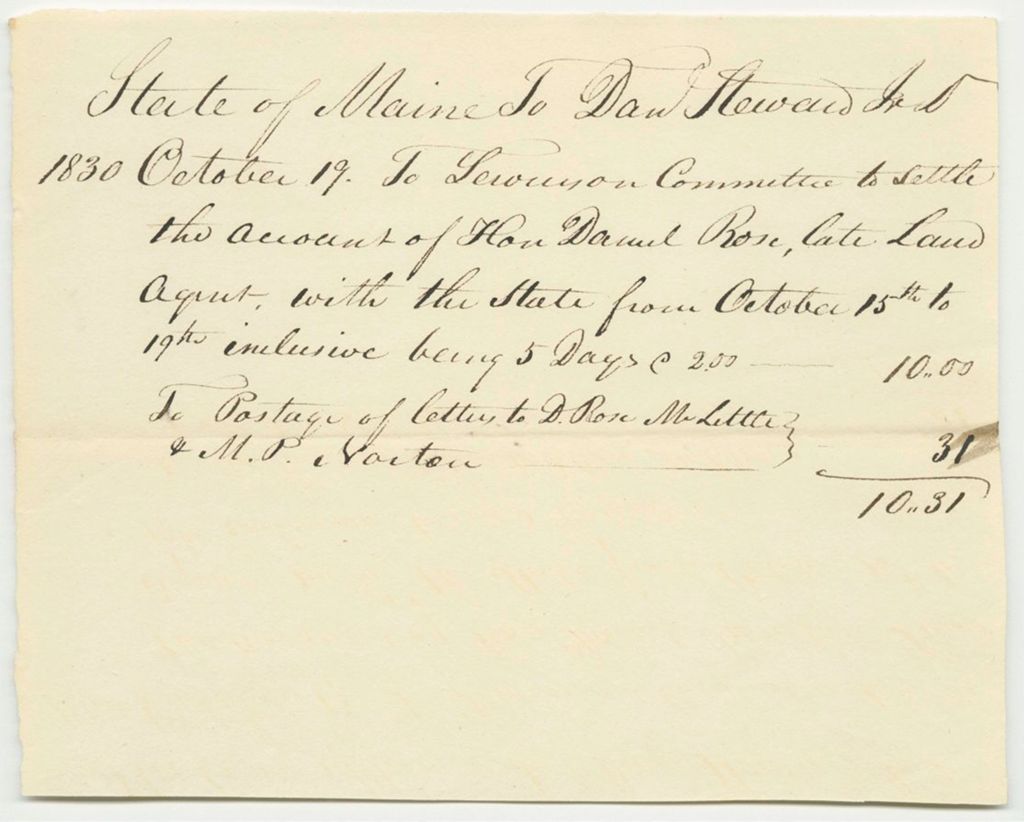 State of Maine To Danl Steward Jr Dr
1830 October 19. To Services on Committee to settle
the account of Hon Daniel Rose, late Land
Agent, with the State from October 15th to
19th inclusive being 5 Days @ 2.00 — 10..00
To Postage of letters to D. Rose Mr Little
& M. P. Norton — 31
10..31